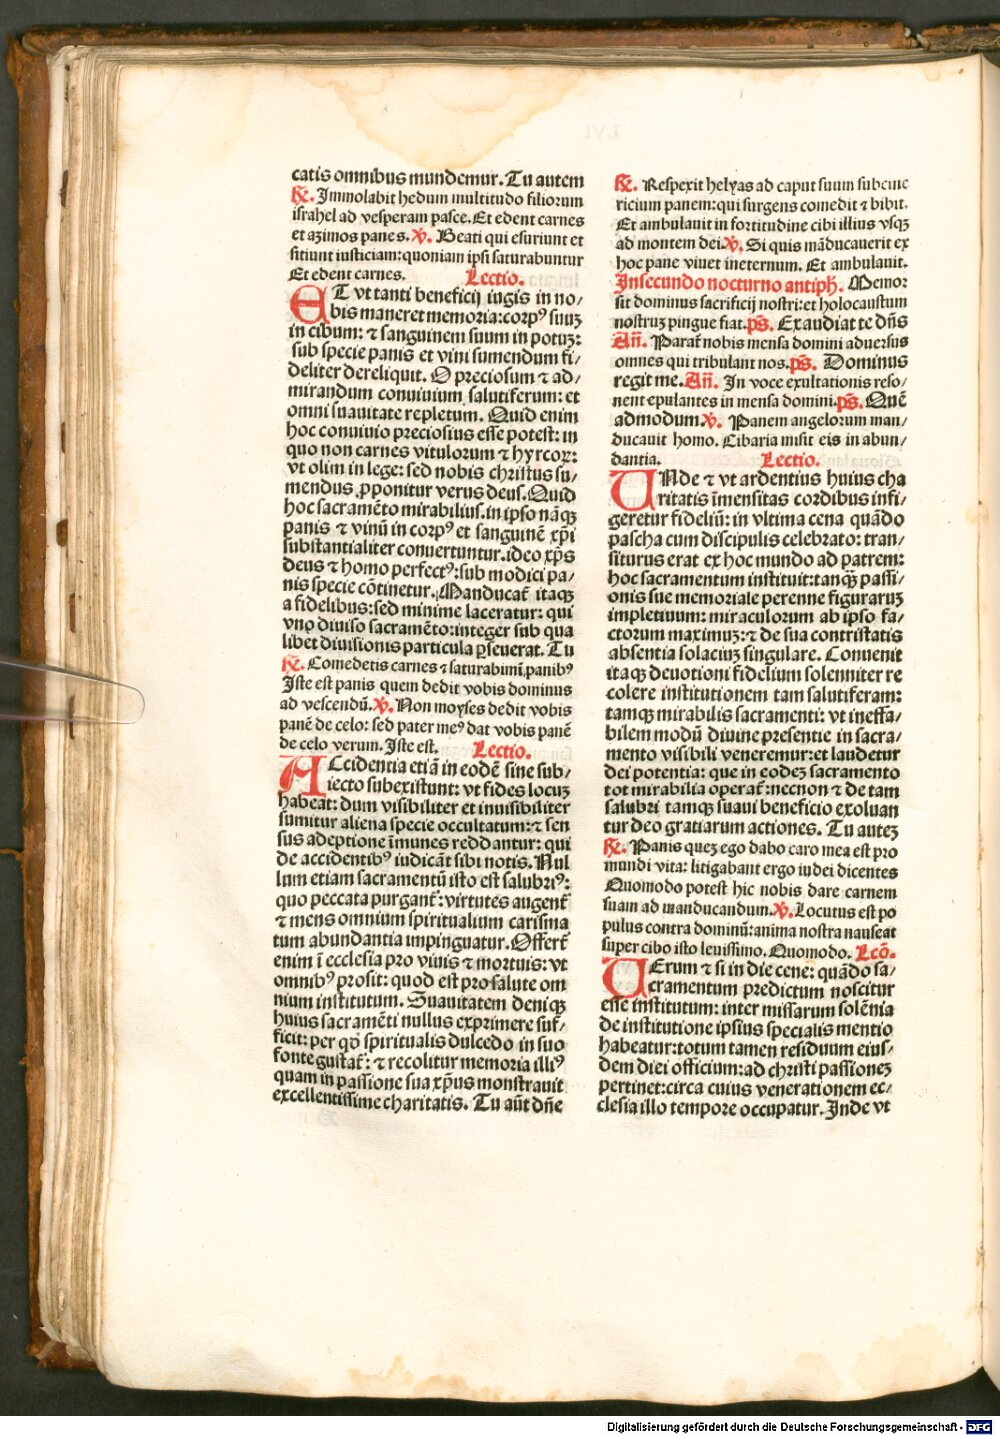 catis omnibus mundemur. Tu autem
R̃. Immolabit hedum multitudo filiorum
israhel ad vesperam pasce. Et edent carnes
et azimos panes. V̓. Beati qui esuriunt et
sitiunt iusticiam: quoniam ipsi saturabuntur
Et edent carnes. Lectio.
ET vt tanti beneficij iugis in no/
bis maneret memoria: corpꝰ suuꝫ
in cibum: ⁊ sanguinem suum in potuꝫ:
sub specie panis et vini sumendum fi/
deliter dereliquit. O preciosum ⁊ ad/
mirandum conuiuium salutiferum: et
omni suauitate repletum. Quid enim
hoc conuiuio preciosius esse potest: in
quo non carnes vitulorum ⁊ hyrcoꝝ:
vt olim in lege: sed nobis christus su/
mendus ꝓponitur verus deus. Quid
hoc sacramēto mirabilius. in ipso nāqꝫ
panis ⁊ vinū in corpꝰ et sanguinē xp̄i
substantialiter conuertuntur. ideo xp̄s
deus ⁊ homo perfectꝰ: sub modici pa/
nis specie cōtinetur. Manducat̄ itaqꝫ
a fidelibus: sed minime laceratur: qui
vno diuiso sacramēto: integer sub qua
libet diuisionis particula ꝑseuerat. Tu
R̃. Comedetis carnes ⁊ saturabimī panibꝰ
Iste est panis quem dedit vobis dominus
ad vescendū. V̓. Non moyses dedit vobis
panē de celo: sed pater meꝰ dat vobis panē
de celo verum. Iste est. Lectio.
ACcidentia etiā in eodē sine sub/
iecto subexistunt: vt fides locuꝫ
habeat: dum visibiliter et inuisibiliter
sumitur aliena specie occultatum: ⁊ sen
sus adeptione īmunes reddantur: qui
de accidentibꝰ iudicāt sibi notis. Nul
lum etiam sacramentū isto est salubriꝰ:
quo peccata purgant̄: virtutes augent̄
⁊ mens omnium spiritualium carisma
tum abundantia impinguatur. Offert̄
enim ī ecclesia pro viuis ⁊ mortuis: vt
omnibꝰ prosit: quod est pro salute om
nium institutum. Suauitatem deniqꝫ
huius sacramēti nullus exprimere suf/
ficit: per qō spiritualis dulcedo in suo
fonte gustat̄: ⁊ recolitur memoria illiꝰ
quam in passione sua xp̄us monstrauit
excellentissime charitatis. Tu aūt dn̄e
R̃. Respexit helyas ad caput suum subcine
ricium panem: qui surgens comedit ⁊ bibit.
Et ambulauit in fortitudine cibi illius vsqꝫ
ad montem dei. V̓. Si quis māducauerit ex
hoc pane viuet ineternum. Et ambulauit.
In secundo nocturno antiph̄. Memor
sit dominus sacrificij nostri: et holocaustum
nostruꝫ pingue fiat. p̄s. Exaudiat te dn̄s
Añ. Parat̄ nobis mensa domini aduersus
omnes qui tribulant nos. p̄s. Dominus
regit me. Añ. In voce exultationis reso/
nent epulantes in mensa domini. p̄s. Quē
admodum. V̓. Panem angelorum man/
ducauit homo. Cibaria misit eis in abun/
dantia. Lectio.
VNde ⁊ vt ardentius huius cha
ritatis īmensitas cordibus infi/
geretur fideliū: in vltima cena quādo
pascha cum discipulis celebrato: tran/
siturus erat ex hoc mundo ad patrem:
hoc sacramentum instituit: tanqꝫ passi/
onis sue memoriale perenne figuraruꝫ
impletiuum: miraculorum ab ipso fa/
ctorum maximuꝫ: ⁊ de sua contristatis
absentia solaciuꝫ singulare. Conuenit
itaqꝫ deuotioni fidelium solenniter re
colere institutionem tam salutiferam:
tamqꝫ mirabilis sacramenti: vt ineffa/
bilem modū diuine presentie in sacra/
mento visibili veneremur: et laudetur
dei potentia: que in eodeꝫ sacramento
tot mirabilia operat̄: necnon ⁊ de tam
salubri tamqꝫ suaui beneficio exoluan
tur deo gratiarum actiones. Tu auteꝫ
R̃. Panis queꝫ ego dabo caro mea est pro
mundi vita: litigabant ergo iudei dicentes
Quomodo potest hic nobis dare carnem
suam ad manducandum. V̓. Locutus est po
pulus contra dominū: anima nostra nauseat
super cibo isto leuissimo. Quomodo. Lcō.
VErum ⁊ si in die cene: quādo sa/
cramentum predictum noscitur
esse institutum: inter missarum solēnia
de institutione ipsius specialis mentio
habeatur: totum tamen residuum eius/
dem diei officium: ad christi passioneꝫ
pertinet: circa cuius venerationem ec/
clesia illo tempore occupatur. Inde vt
Digitalisierung gefördert durch die Deutsche Forschungsgemeinschaft - DFG